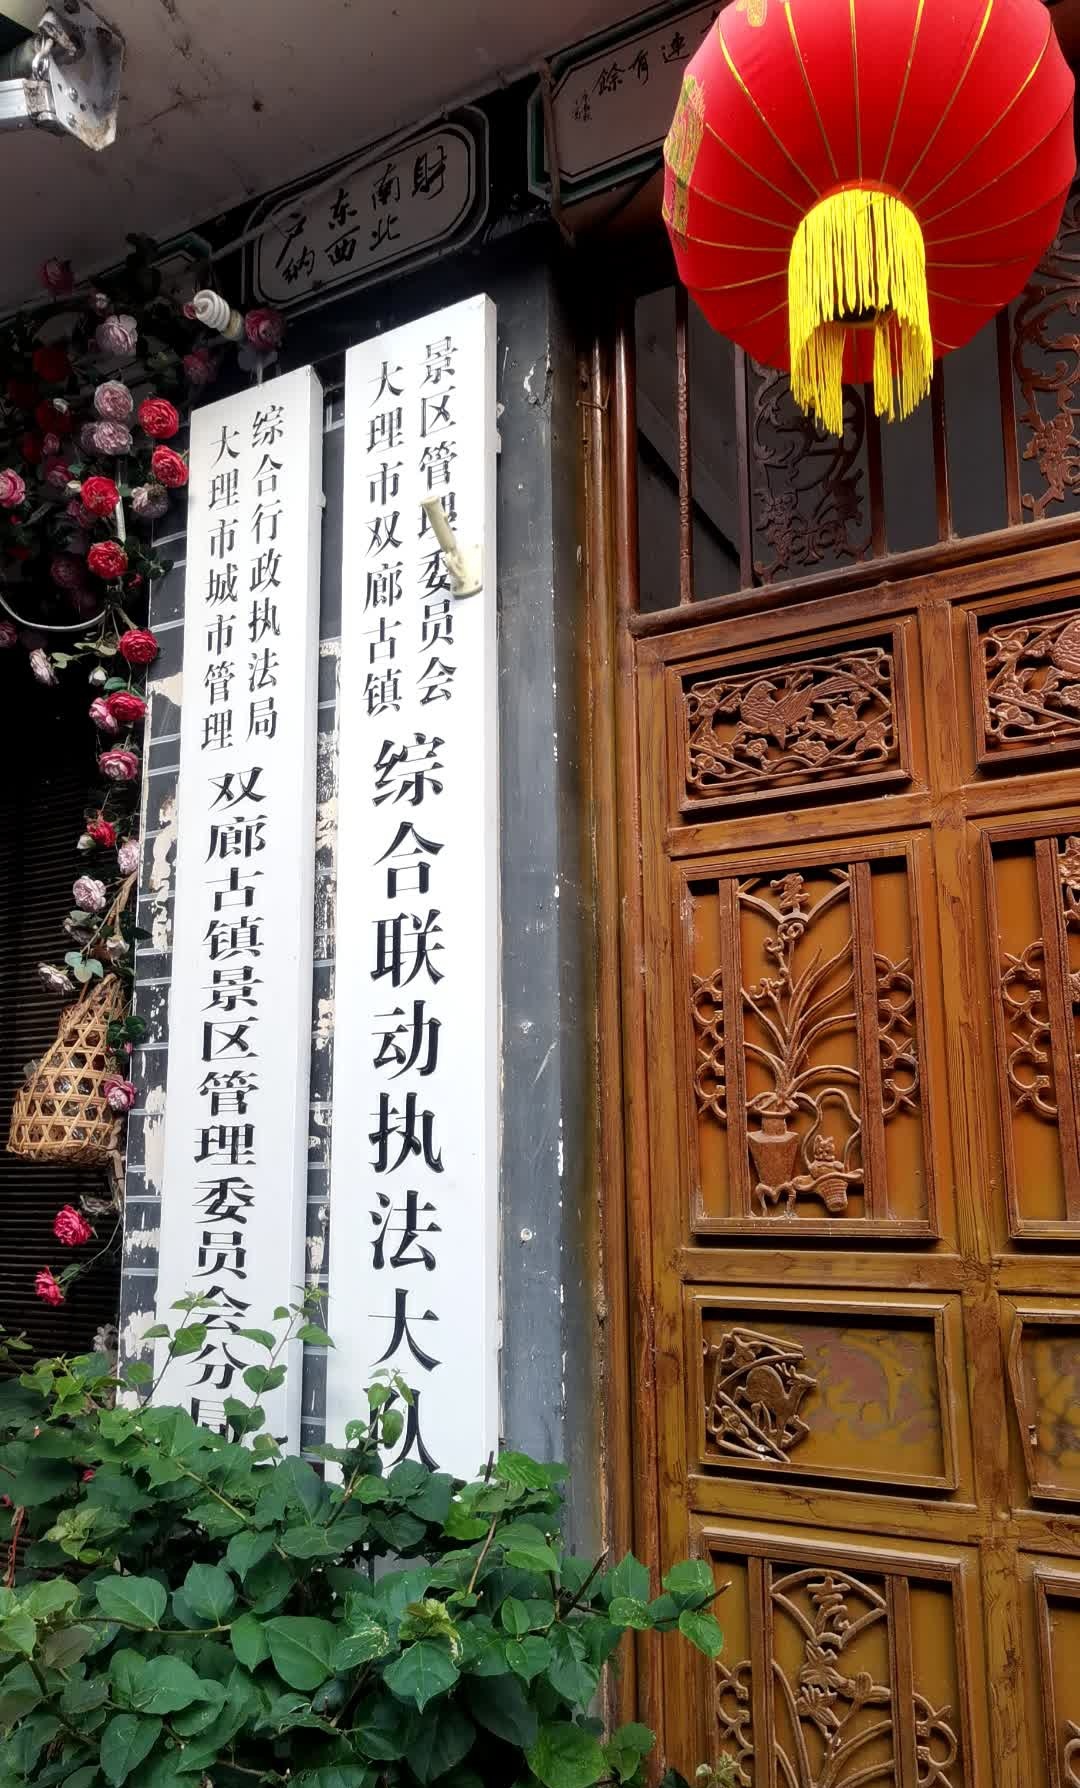 有連
有餘
財
南北
东西
户纳
景区管理委员会
大理市双廊古镇
综合联动执法大队
综合行政执法局
大理市城市管理
双廊古镇景区管理委员会分局
吉